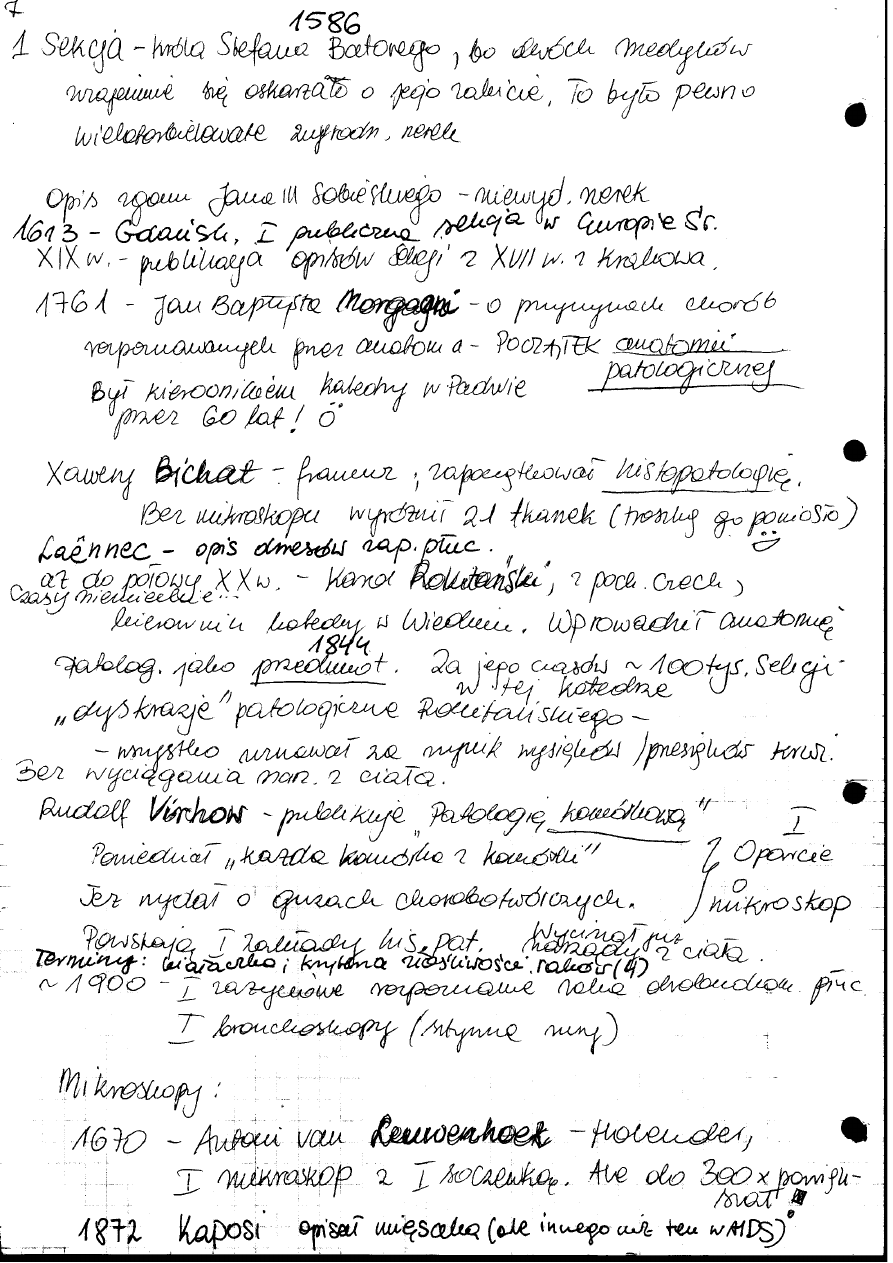 7
1586
1 Sekcja - króla Stefana Batorego, bo dwóch medyków
wzajemnie się oskarżało o jego zabicie. To było pewno
wielotorbielowate zwyrodn. nerek
Opis zgonu Jana III Sobieskiego - niewyd. nerek
1613 - Gdańsk, I publiczna sekcja w Europie Śr.
XIX w. - publikacja opisów sekcji z XVII w. z Krakowa.
1761 - Jan Baptysta Morgagni - o przyczynach chorób
rozpoznawanych przez anatoma - POCZĄTEK anatomii
patologicznej
Był kierownikiem katedry w Padwie
przez 60 lat! Ö
Xawery Bichat - francuz, zapoczątkował histopatologię.
Bez mikroskopu wyróżnił 21 tkanek (troszkę go poniosło)
Laënnec - opis zap. płuc.
aż do połowy XX w. - Karol Rokitański, z poch. Czech,
Czasy niemieckie...
kierownik katedry w Wiedniu. Wprowadził anatomię
1844
patolog. jako przedmiot. Za jego czasów ~ 100 tys. Sekcji
w tej katedrze
„dyskrazje" patologiczne Rokitańskiego -
- wszystko uznawał za wynik wysięków / przesięków krwi.
Bez wyciągania narz. z ciała.
Rudolf Virchow - publikuje „Patologię komórkową"
I
Powiedział „każda komórka z komórki"
Oparcie
o
mikroskop
Też wydał o guzach chorobotwórczych.
Powstają I zakłady his. pat.
Wycinał już
narządy z ciała.
Terminy: białaczka i kryteria złośliwości raków (4)
~ 1900 - I zażyciowe rozpoznanie raka drobnokom. płuc
I bronchoskopy (sztywne rury)
Mikroskopy:
1670 - Antoni van Leuwenhoek - Holender,
I mikroskop z I soczewką. Ale do 300 x powięk-
szał!
1872 Kaposi opisał mięsaka (ale innego niż ten w AIDS)